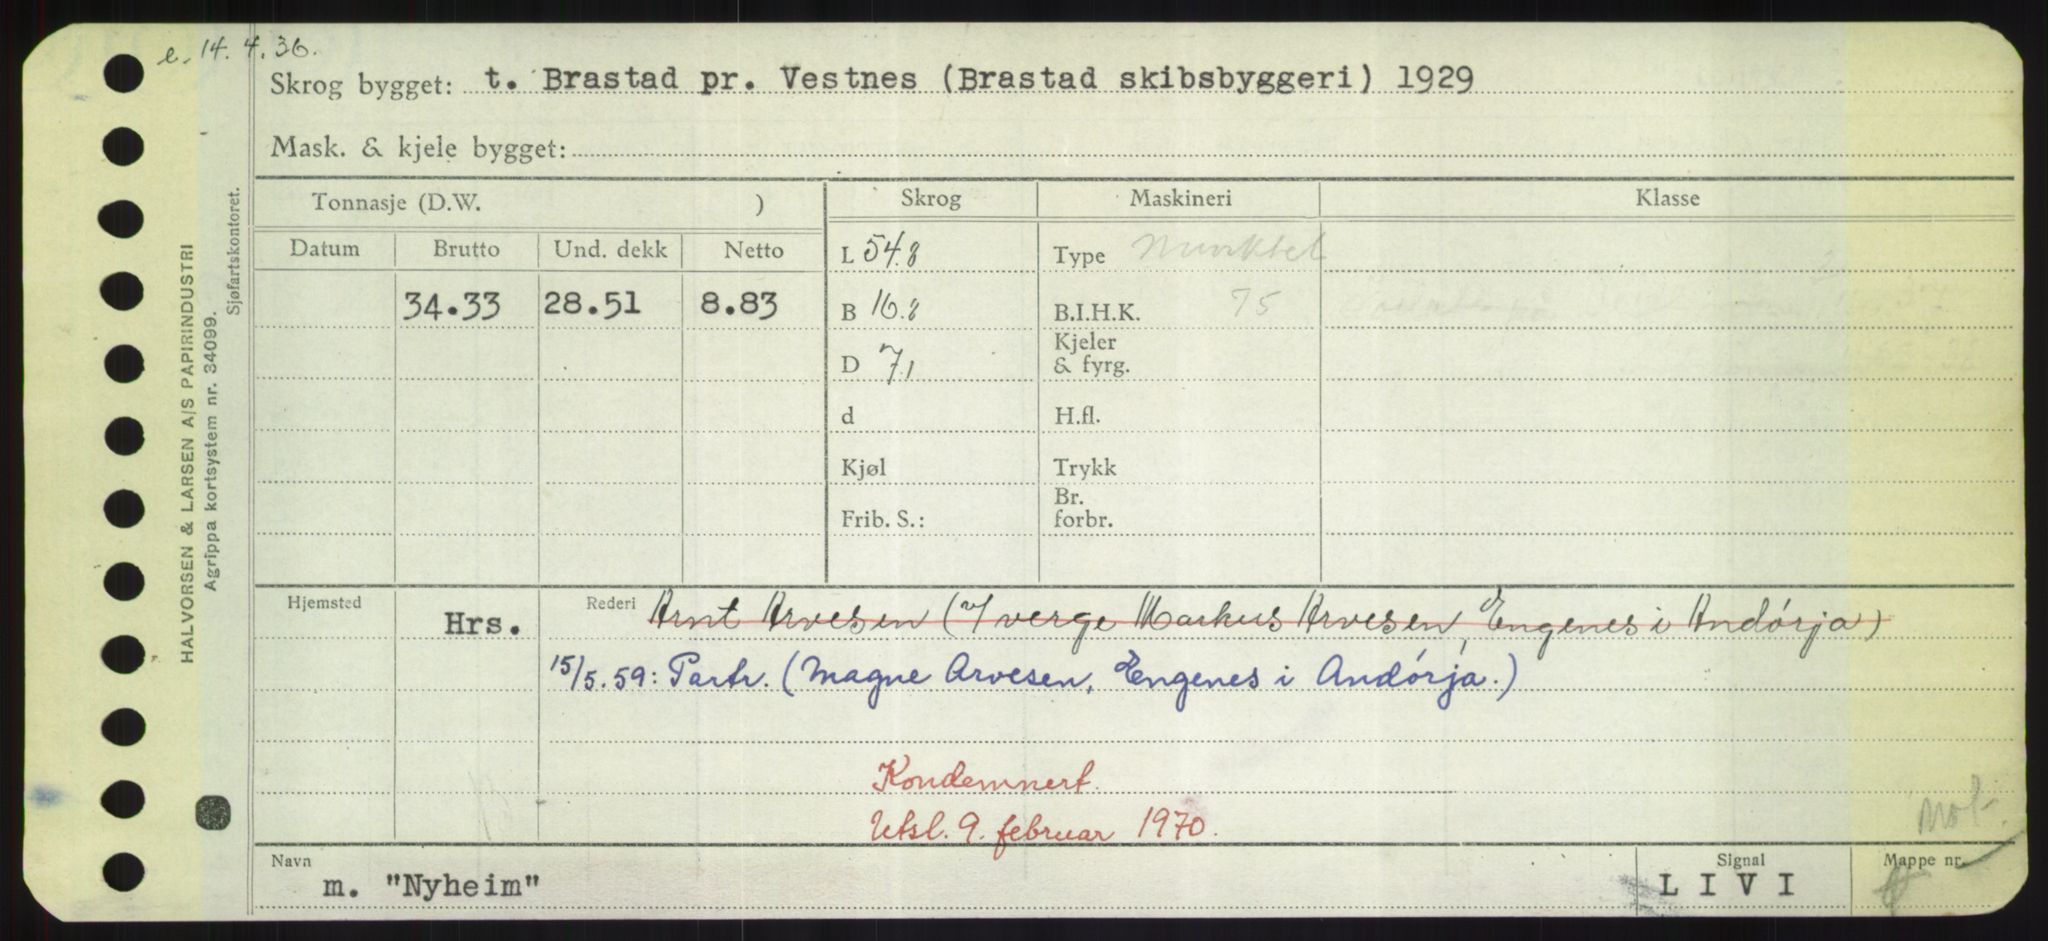 e. 14.4.36.
Skrog bygget: t. Brastad pr. Vestnes (Brastad skibsbyggeri) 1929
Mask. & kjele bygget:
Tonnasje (D.W. ) Skrog Maskineri Klasse
Datum Brutto Und. dekk Netto L 54.8 Type Munktel
34.33 28.51 8.83 B 16.8 B.I.H.K. 75
D 7.1 Kjeler & fyrg.
d H.fl.
Kjøl Trykk
Frib. S.: Br. forbr.
Hjemsted Hrs. Rederi Arnt Arvesen (v/ verge Markus Arvesen, Engenes i Andórja)
15/5.59: Partr. (Magne Arvesen, Engenes i Andórja.)
Kondemnert.
Utsl. 9. februar 1970.
Mot.
Navn Signal Mappe nr.
m. "Nyheim" L I V I
HALVORSEN & LARSEN A/S PAPIRINDUSTRI
Agrippa kortsystem nr. 34099.
Sjøfartskontoret.